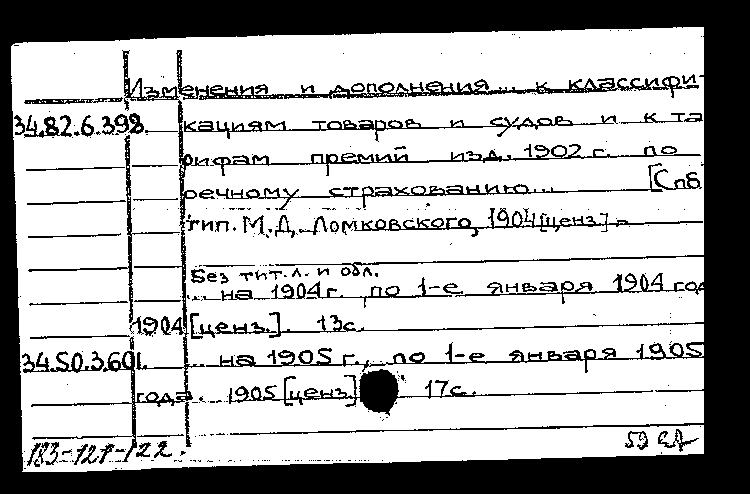 Изменения и дополнения... к классифи-
34.82.6.398. кациям товаров и судов и к та
рифам премий изд. 1902 г. по
речному страхованию... [Спб
тип. М.Д. Ломковского, 1904 [ценз.] -
Без тит.л. и обл.
... на 1904 г., по 1-е января 1904 год
1904 [ценз.]. 13с.
34.50.3.601. ... на 1905 г., по 1-е января 1905
года. 1905 [ценз] 17с.
183-121-122.
59